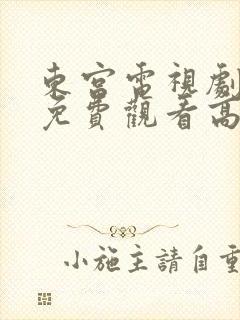 東宮電視劇
免費觀看高
小施主請自重